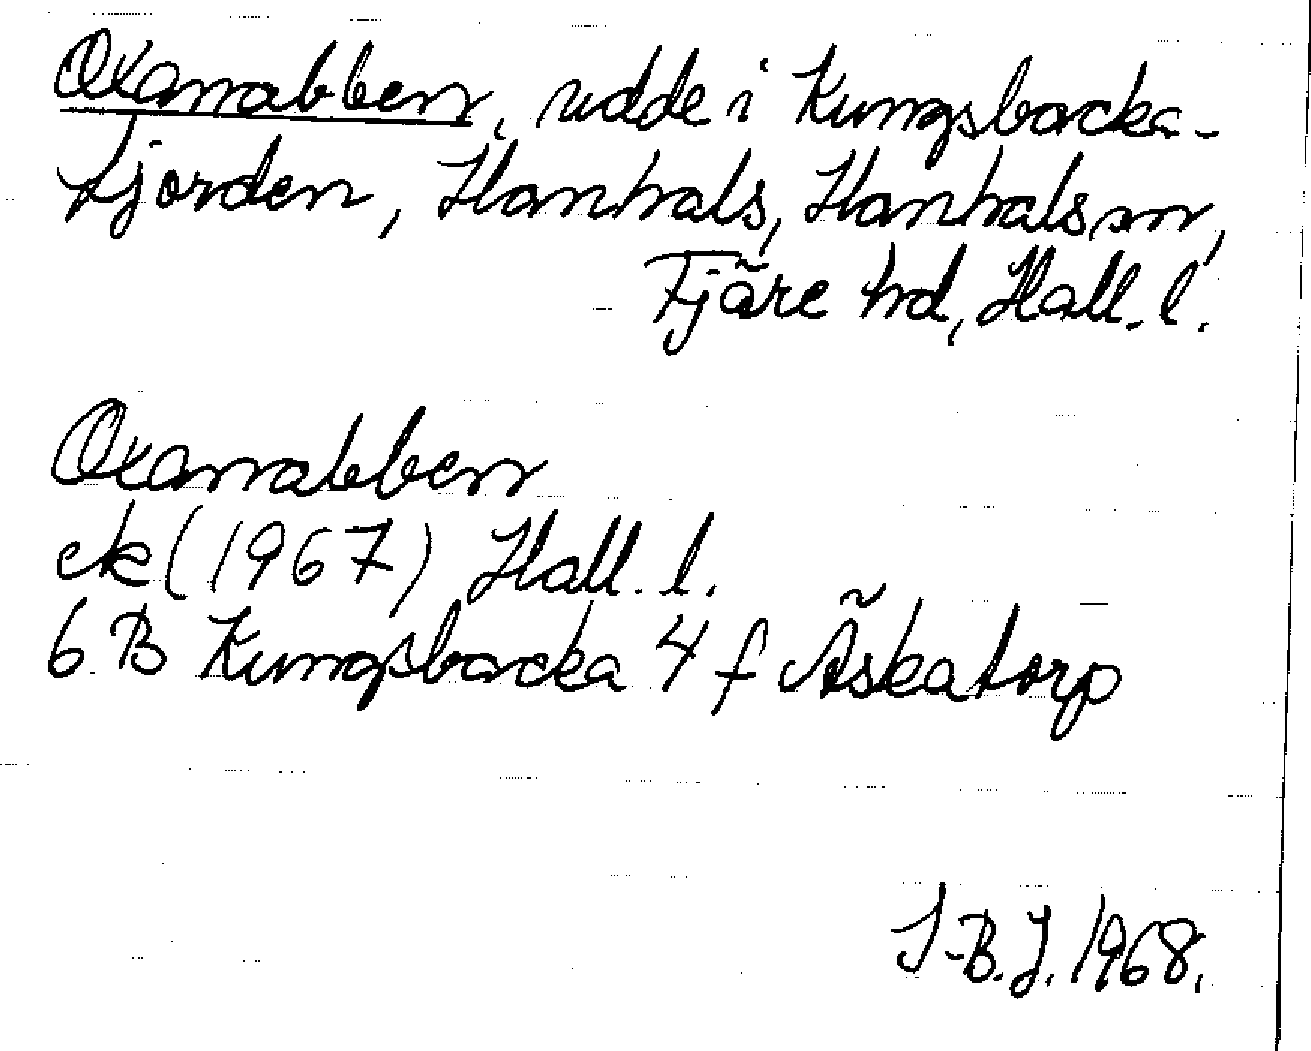 Oxanabben, udde i Kungsbacka-
fjorden, Hanhals, Hanhals sn,
Fjäre hd, Hall. l.
Oxanabben
ek (1967) Hall. l.
6 B Kungsbacka 4 f Äskatorp
I-B. J. 1968.